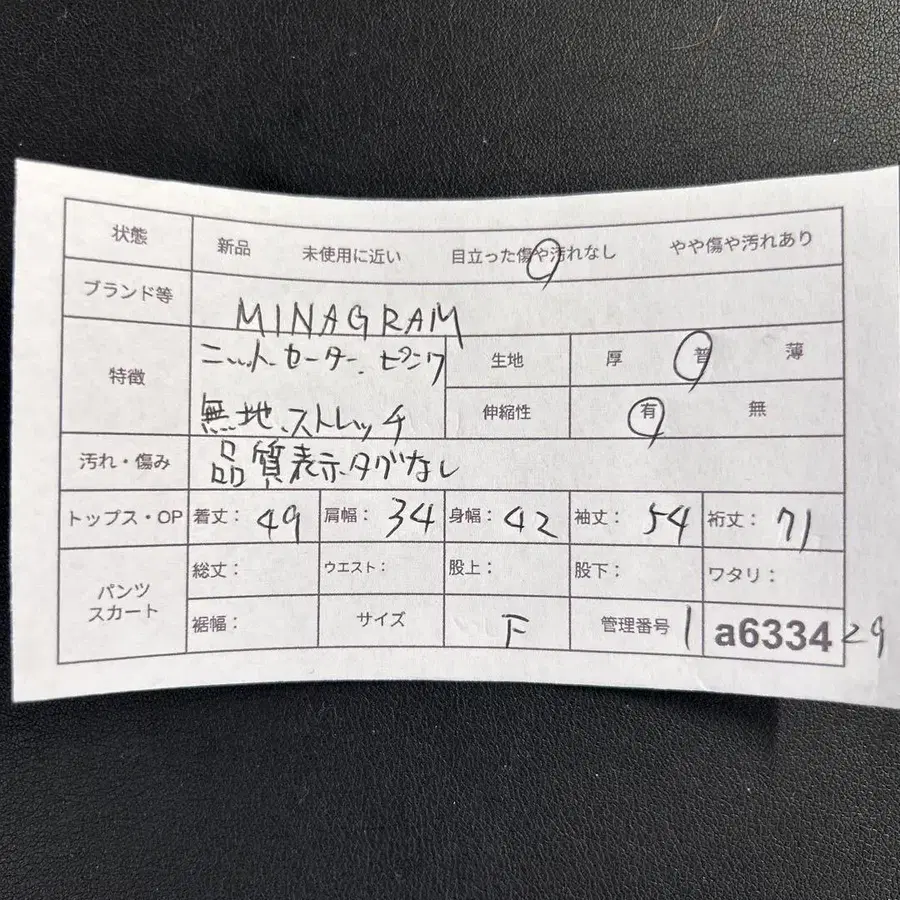 状態 新品 未使用に近い 目立った傷や汚れなし やや傷や汚れあり
ブランド等 MINAGRAM
特徴 ニットセーター、ピンク 生地 厚 普 薄
無地、ストレッチ 伸縮性 有 無
汚れ・傷み 品質表示タグなし
トップス・OP 着丈: 49 肩幅: 34 身幅: 42 袖丈: 54 裄丈: 71
パンツ スカート 総丈: ウエスト: 股上: 股下: ワタリ:
裾幅: サイズ F 管理番号 1 a6334 29